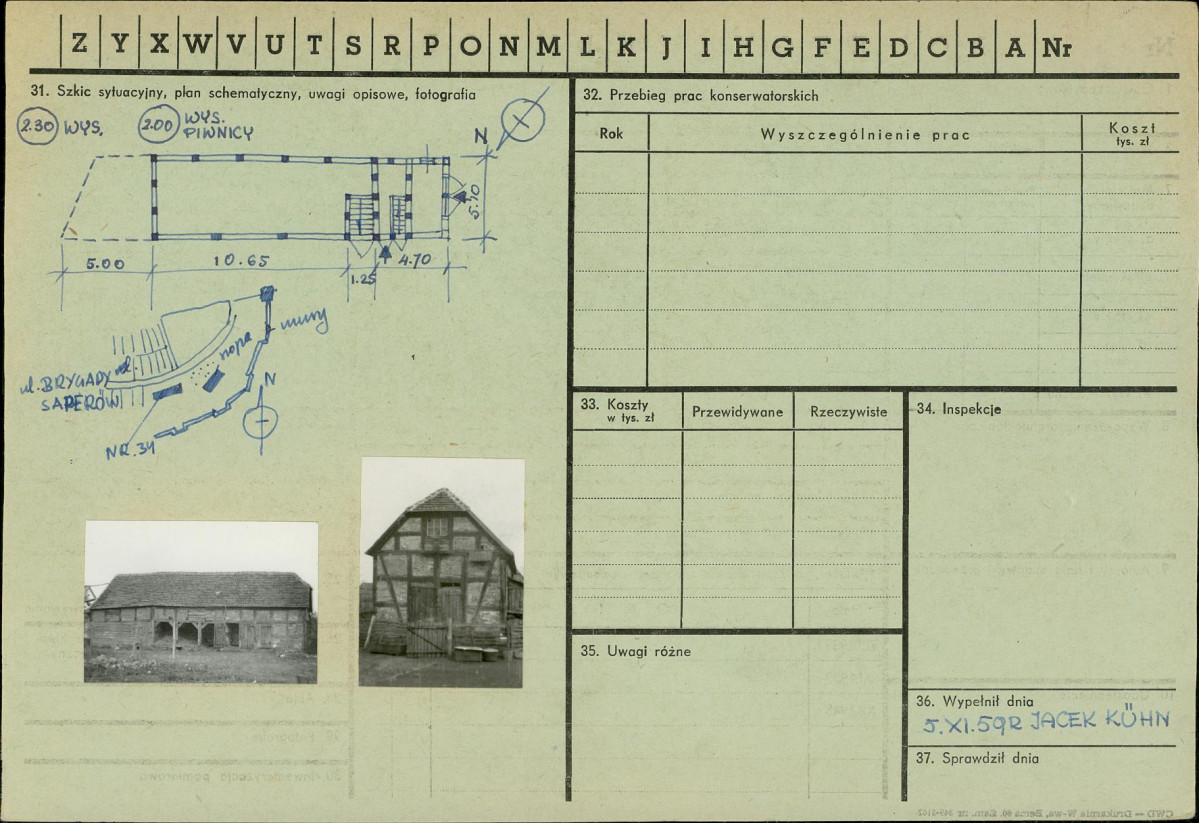 Z Y X W V U T S R P O N M L K J I H G F E D C B A Nr
31. Szkic sytuacyjny, plan schematyczny, uwagi opisowe, fotografia
2.30 WYS.
2.00 WYS. PIWNICY
N
5.70
5.00
10.65
1.25
4.70
mury
ul. BRYGADY
SAPERÓW
N
NR.34
32. Przebieg prac konserwatorskich
Rok
Wyszczególnienie prac
Koszt
tys. zł
33. Koszty
w tys. zł
Przewidywane
Rzeczywiste
34. Inspekcje
35. Uwagi różne
36. Wypełnił dnia
5.XI.59R JACEK KÜHN
37. Sprawdził dnia